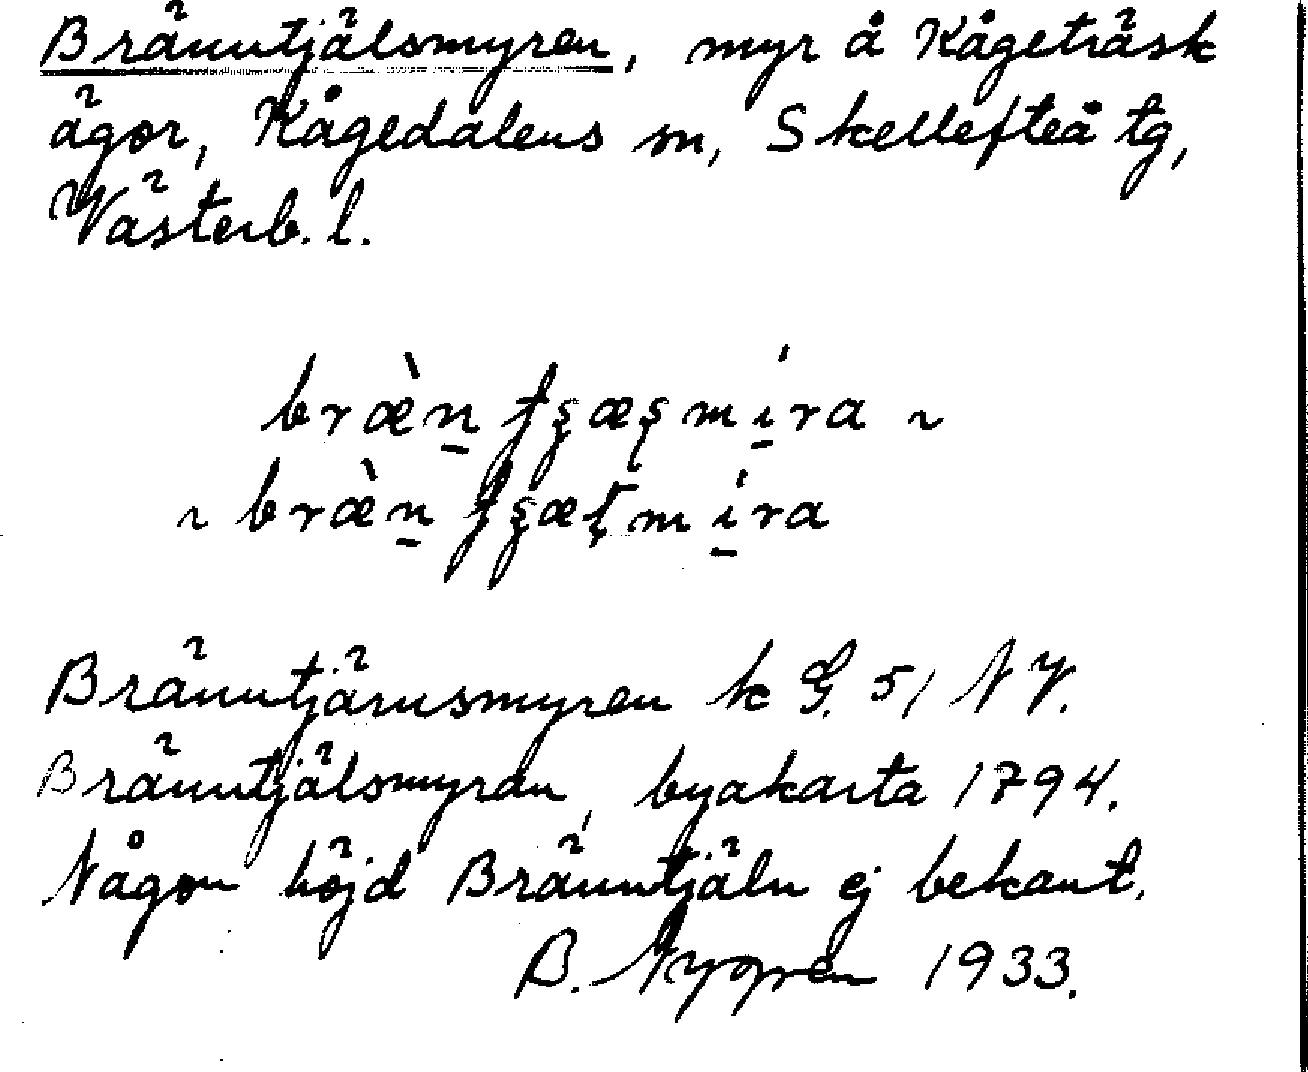 Bränntjälsmyren, myr å Kågeträsk
ägor, Kågedalens sn, Skellefteå tg,
Västerb. l.
bræ̀n̲ ʄʂæʂmí̲ra ~
~ bræ̀n̲ ʄʂæʈmí̲ra
Bränntjärnsmyren k G. 51 NV.
Bränntjälsmyran, byakarta 1794.
Någon höjd Bränntjäln ej bekant.
B. Nygren 1933.